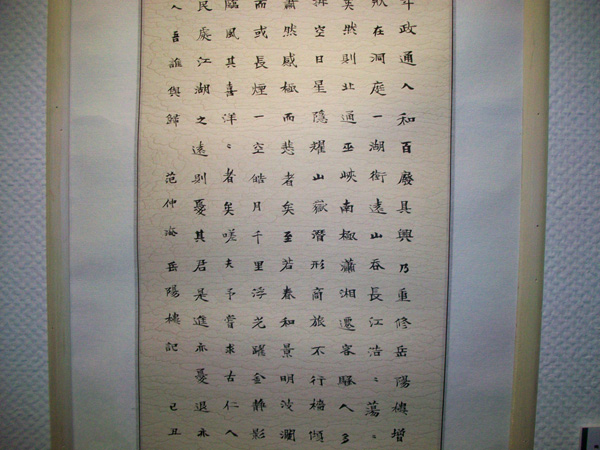 年政通人和百廢具興乃重修岳陽樓增
狀在洞庭一湖銜遠山吞長江浩〻蕩〻
矣然則北通巫峽南極瀟湘遷客騷人多
排空日星隱耀山嶽潛形商旅不行檣傾
蕭然感極而悲者矣至若春和景明波瀾
而或長煙一空皓月千里浮光躍金靜影
臨風其喜洋〻者矣嗟夫予嘗求古仁人
民處江湖之遠則憂其君是進亦憂退亦
人吾誰與歸 范仲淹岳陽樓記 己丑